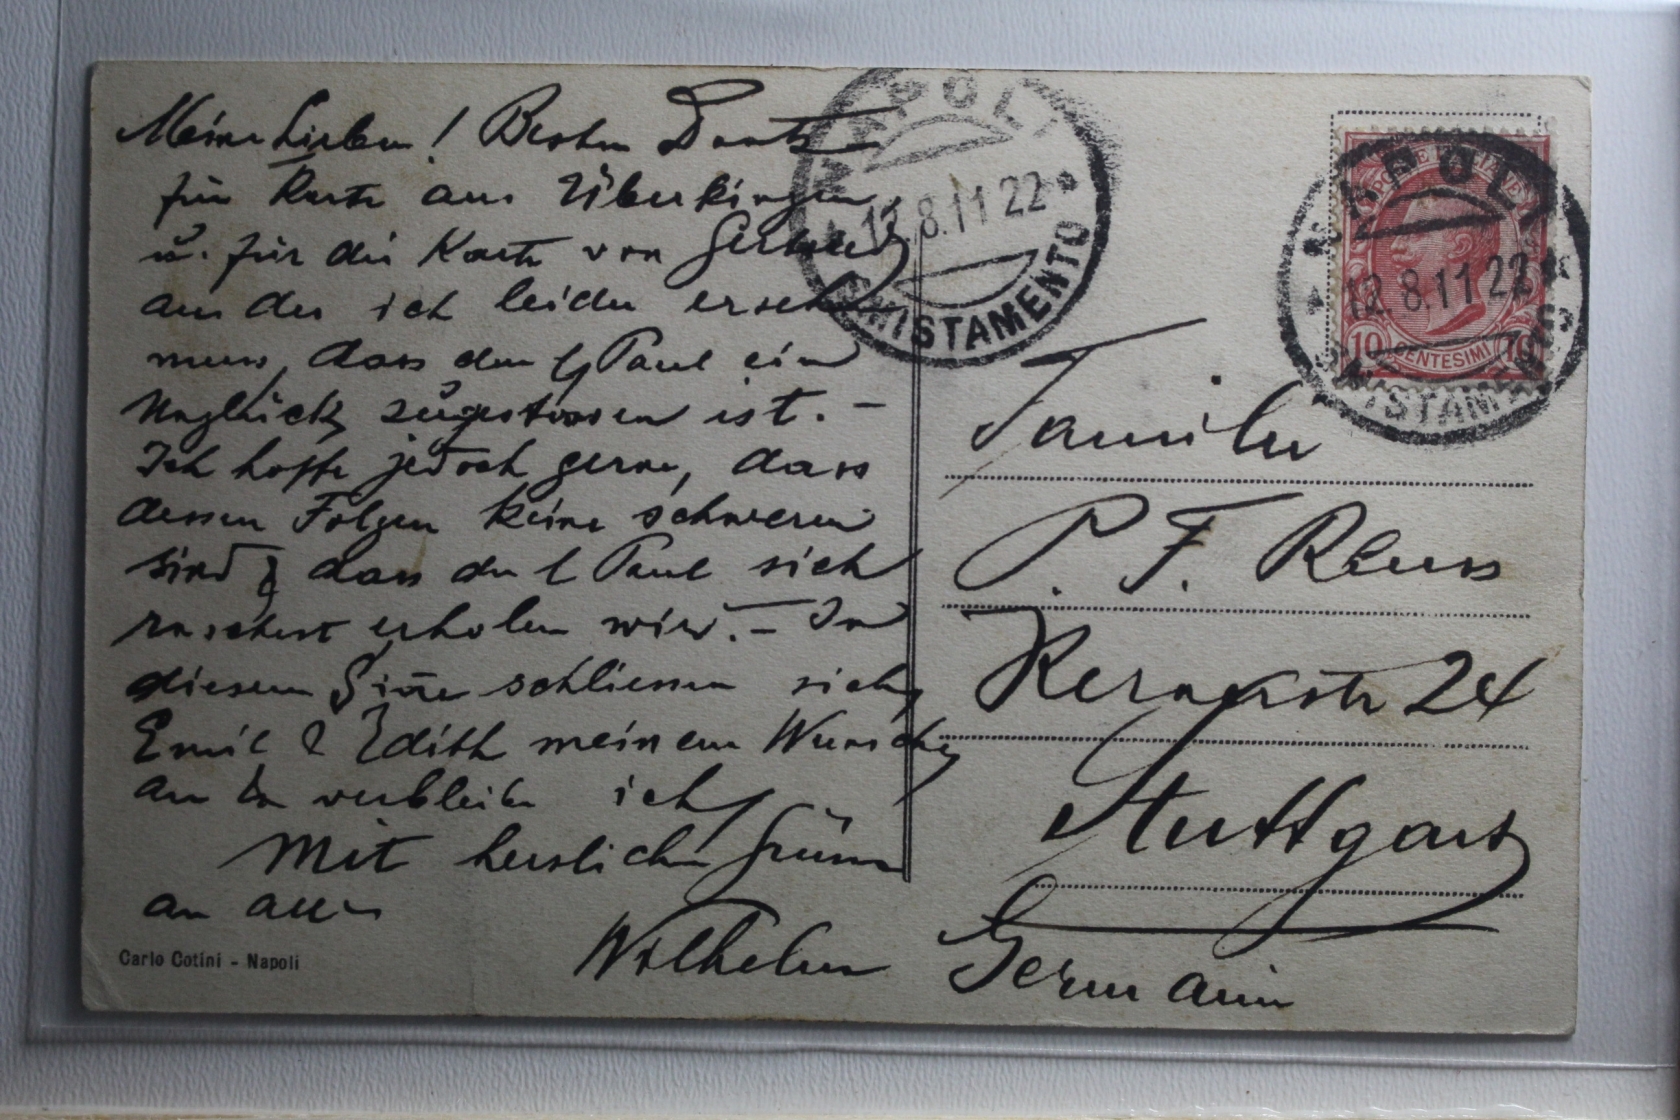 Meine Lieben! Besten Dank
für Karte aus Überkingen
u. für die Karte von
aus der ich leider ersehen
muss, dass dem l. Paul ein
Unglück zugestossen ist. –
Ich hoffe jedoch gerne, dass
dessen Folgen keine schweren
sind & dass der l Paul sich
raschest erholen wird. – In
diesem Sinne schliessen sich
Emil & Edith meinem Wunsche
an verbleibe ich
Mit herzlichen Grüssen
an alle
Wilhelm
Carlo Cotini - Napoli
NAPOLI
12.8.11 22
SMISTAMENTO
POSTE ITALIANE
10 CENTESIMI 10
NAPOLI
12.8.11 22
SMISTAMENTO
Familie
P. F. Reuss
Kernerstr 24
Stuttgart
Germania